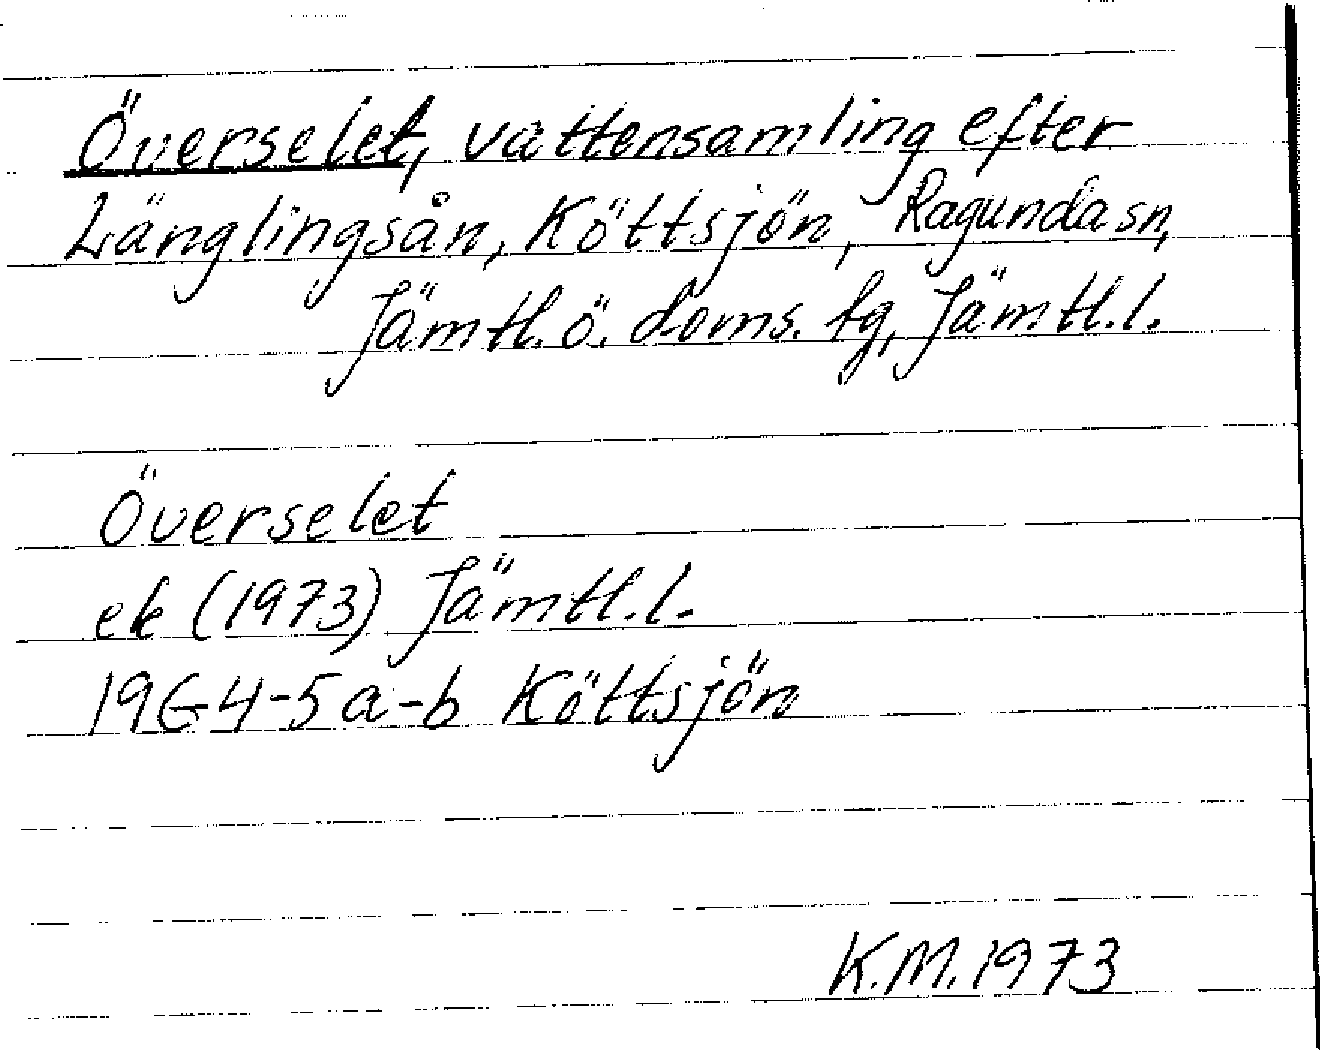 Överselet, vattensamling efter
Länglingsån, Köttsjön, Ragunda sn,
Jämtl. ö. doms. tg, Jämtl. l.
Överselet
ek (1973) Jämtl. l.
19G-4-5a-b Köttsjön
K.M. 1973